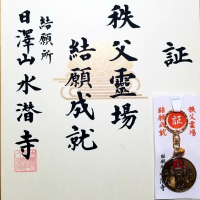 証
秩父靈場
結願成就
結願所
日澤山水潜寺
秩父霊場
結願成就
証